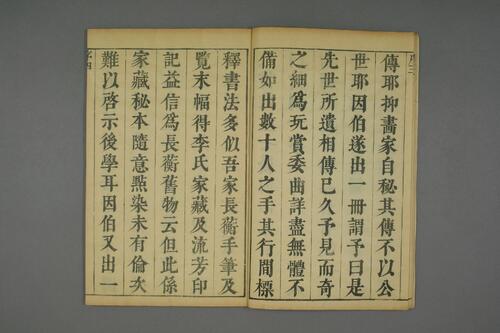 傳耶抑畵家自秘其傳不以公
世耶因伯遂出一冊謂予曰是
先世所遺相傳已久予見而奇
之細爲玩賞委曲詳盡無體不
備如出數十人之手其行間標
釋書法多似吾家長蘅手筆及
覽末幅得李氏家藏及流芳印
記益信爲長蘅舊物云但此係
家藏秘本隨意㸃染未有倫次
難以啓示後學耳因伯又出一